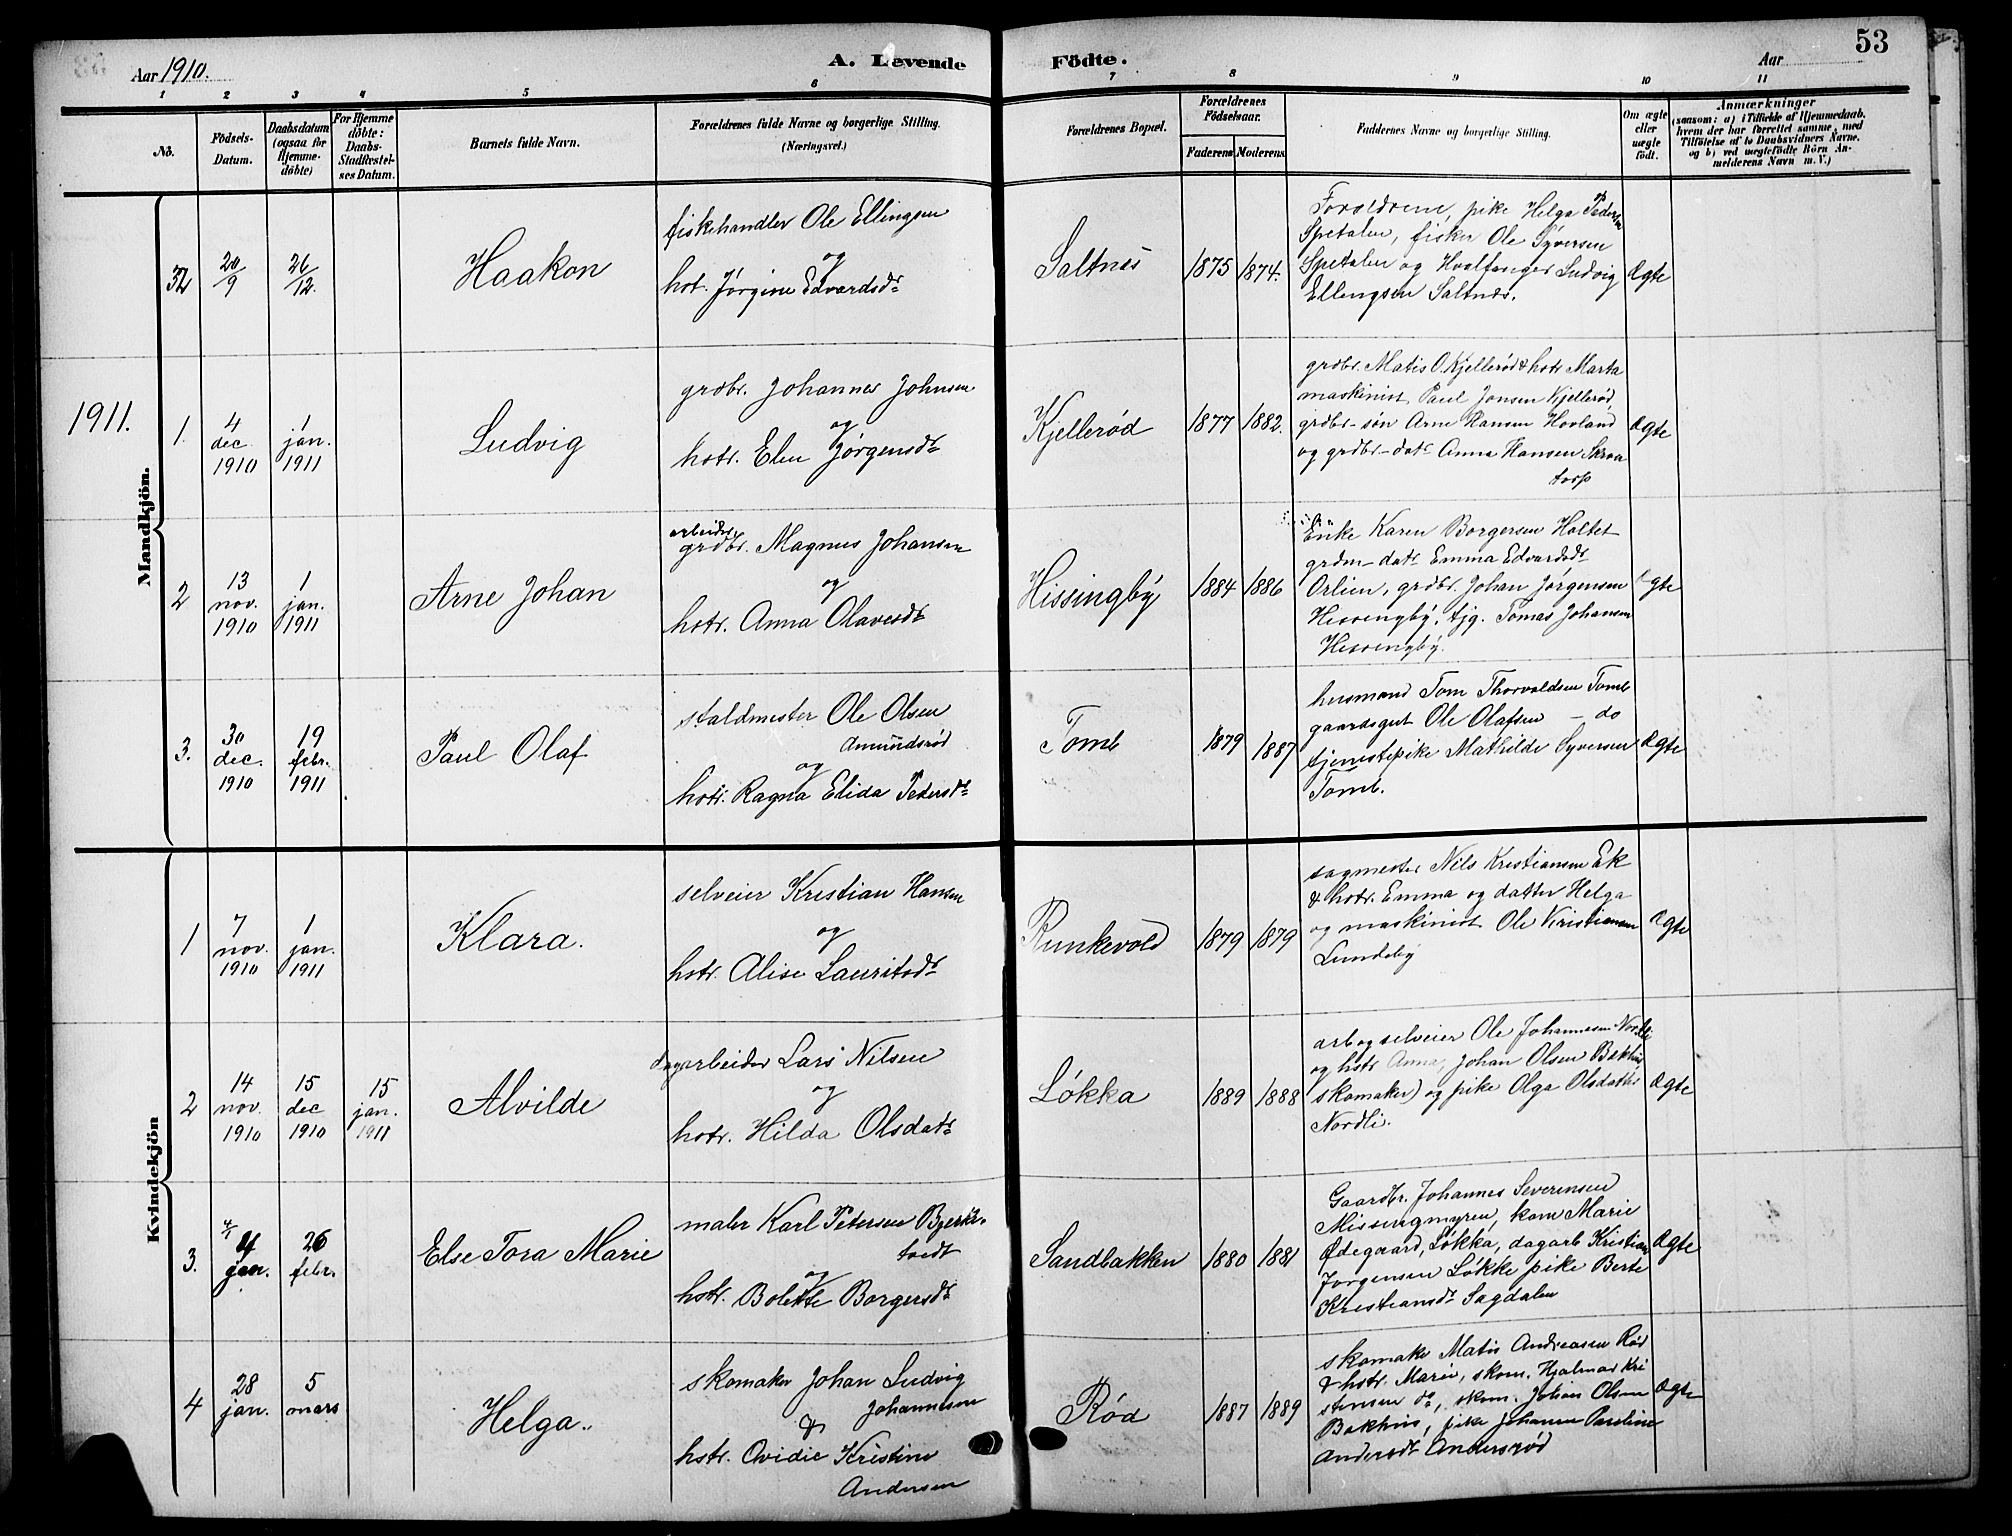 53
Aar 1910.
A. Levende
Födte.
Aar
1 2 3 4 5 6 7 8 9 10 11
No.
Födsels-
Datum.
Daabsdatum
(ogsaa for
Hjemme-
döbte)
For Hjemme
döbte:
Daabs-
Stadfæstel-
ses Datum.
Barnets fulde Navn.
Forældrenes fulde Navne og borgerlige Stilling.
(Næringsvei.)
Forældrenes Bopæl.
Forældrenes
Födselsaar.
Faderens
Moderens
Faddernes Navne og borgerlige Stilling.
Om ægte
eller
uægte
födt.
Anmærkninger
(saasom: a) i Tilfælde af Hjemmedaab,
hvem der har forrettet samme, med
Tilföielse af to Daabsvidners Navne.
og b) ved uægtefödte Börn An-
melderens Navn m. V.)
Mandkjön.
32
20/9
26/12.
Haakon
fiskehandler Ole Ellingsen
og
hst. Jørgine Edvardsdr
Saltnes
1875
1874.
Foreldrene, pike Helga Pedersen
Spetalen, fisker Ole Syversen
Spetalen og Hvalfanger Ludvig
Ellengsen Saltnes.
Ægte
1911.
1.
4
dec.
1910
1
jan.
1911
Ludvig
grdbr. Johannes Johnsen
og
hstr. Elen Jørgensdt
Kjellerød
1877
1882.
grdbr. Matis O. Kjellerød & hstr Marta
maskinist Paul Jonsen Kjellerød,
grdbr-søn Arne Hansen Hovland
og grdbr-datr Anna Hansen Skraa
torp
Ægte
2
13
nov.
1910
1
jan.
1911
Arne Johan
arbeider
grdbr. Magnus Johansen
og
hstr. Anna Olavesdt
Hissingby
1884
1886
Enke Karen Borgersen Holtet
grdm-datr Emma Edvardsdr
Orlien, grdbr. Johan Jørgensen
Hissengby, tjg. Tomas Johansen
Hissengby.
Ægte
3.
30
dec.
1910
19
febr.
1911
Paul Olaf
staldmester Ole Olsen
Amundsrød
og
hstr. Ragna Elida Pedersdt
Tomb
1879
1887
husmand Tom Thorvaldsen Tomb
gaardsgut Ole Olafsen - do
tjenestepike Mathilde Syversen
Tomb.
Ægte
Kvindekjön
1
7
nov.
1910
1
jan.
1911
Klara.
selveier Kristian Hansen
og
hstr. Alise Lauritsdr
Runkevold
1879
1879
sagmester Nils Kristiansen Ek
& hstr. Emma og datter Helga
og maskinist Ole Kristiansen
Lundeby
Ægte
2
14
nov.
1910
15
dec
1910
15
jan.
1911
Alvilde
dagarbeider Lars Nilsen
og
hstr. Hilda Olsdatr
Løkka
1889
1888
arb og selveier Ole Johannesen Nordli
og hstr Anna, Johan Olsen Bakhus
skomaker) og pike Olga Olsdatter
Nordli.
Ægte
3.
4
jan.
26
febr.
Else Tora Marie
maler Karl Petersen Bjerke-
tvedt
og
hstr. Bolette Borgersdt
Sandbakken
1880
1881
Gaardbr. Johannes Severensen
Missingmyren, kone Marie
Ødegaard, Løkka, dagarb Kristian
Jorgensen Løkke pike Berte
Kristiansdt Sagdalen
Ægte
4
28
jan.
5
mars
Helga.
skomaker Johan Ludvig
Johannesen
&
hstr. Ovidie Kristine
Andersen
Rød
1887
1889
skomaker Matis Andreasen Rød
& hstr. Marie, skom. Hjalmar Kri
stensen do, skom. Johan Olsen
Bakhus, pike Johanne Pauline
Andersdt Andersrød
Ægte